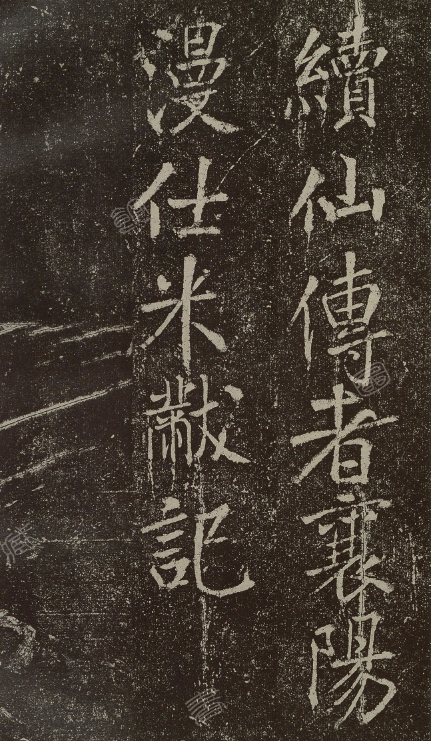 續仙傳者襄陽
漫仕米黻記